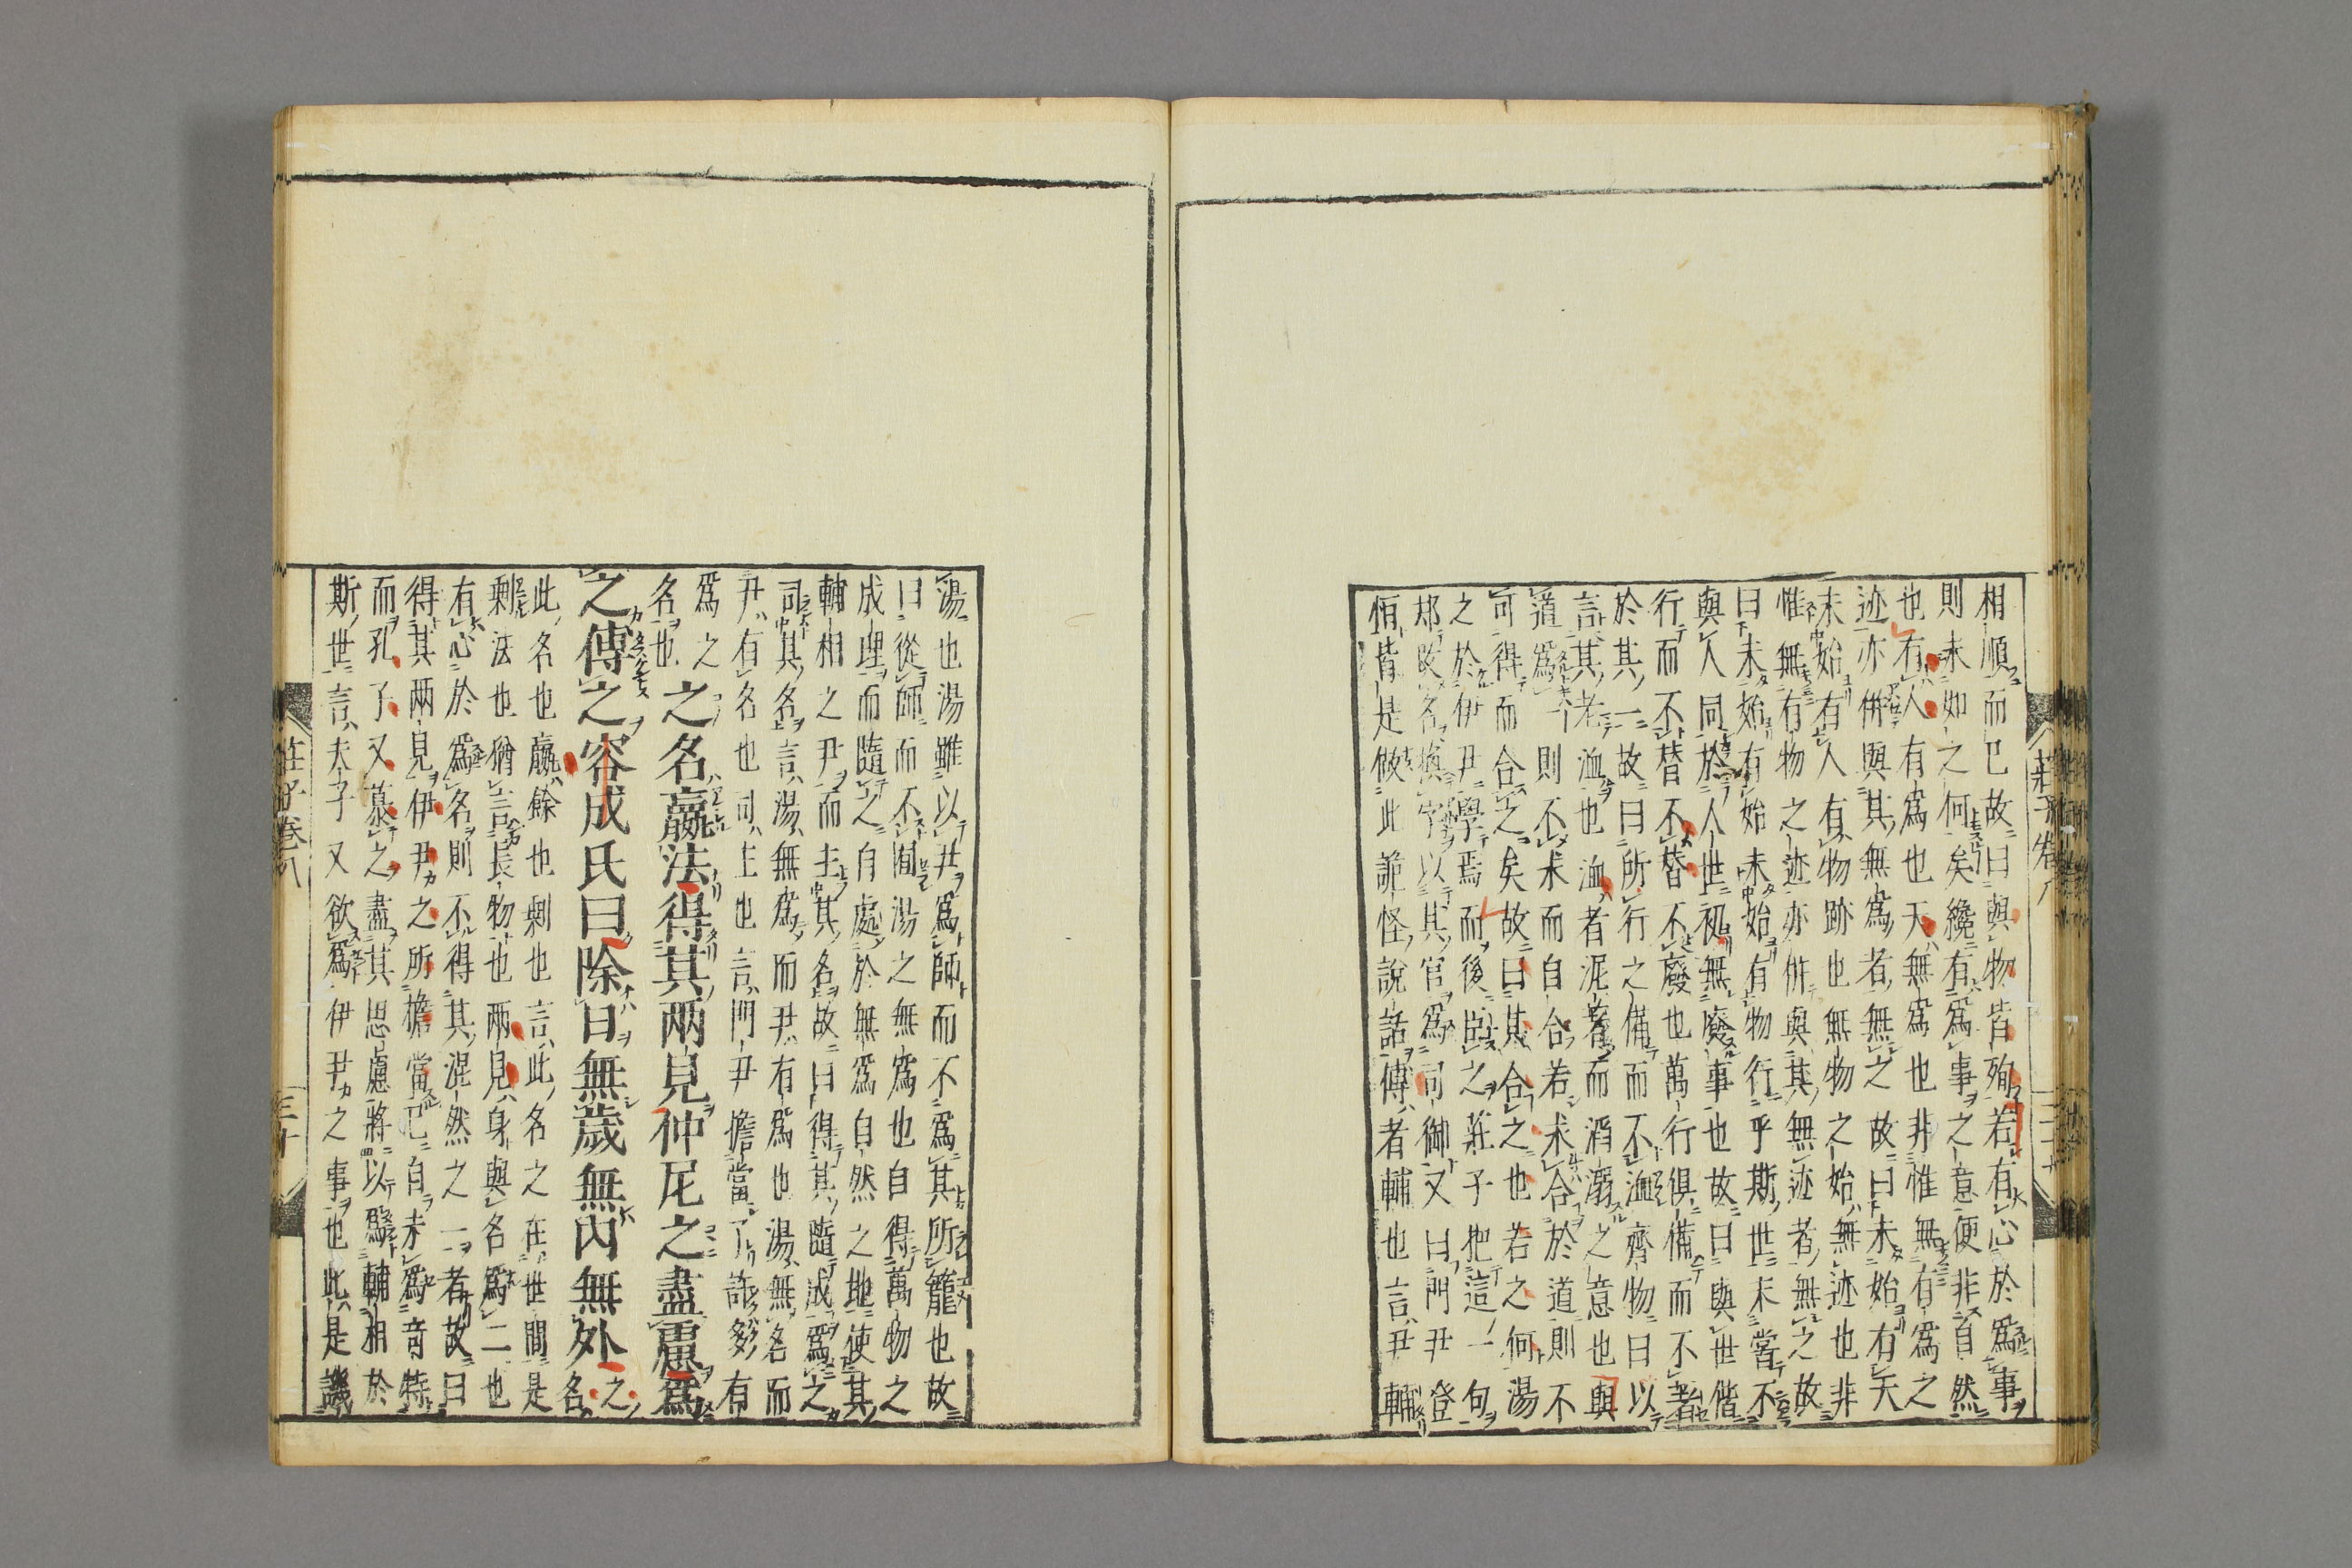 相順而已故曰與物皆殉若有心於爲事
則未如之何矣纔有爲事之意便非自然
也有人有爲也天無爲也非惟無有爲之
迹亦併與其無爲者無之故曰未始有天
未始有人有物跡也無物之始無迹也非
惟無有物之迹亦併與其無迹者無之故
曰未始有始未始有物行乎斯世未嘗不
與人同於人世初無廢事也故曰與世偕
行而不替不替不廢也萬行俱備而不著
於其一故曰所行之備而不洫齊物曰以
言其老洫也洫者泥著而溺之意也與
道爲一則不求而自合若求合於道則不
可得而合之矣故曰其合之也若之何湯
之於伊尹學焉而後臣之莊子把這一句
却改名換字以其官爲司御又曰門尹登
恒皆是做此詭怪說話傅者輔也言尹輔
莊子卷八
湯也湯雖以尹爲師而不爲其所籠也故
曰從師而不囿湯之無爲也自得萬物之
成理而隨之自處於無爲自然之地使其
輔相之尹而主其名故曰得其隨成爲之
司其名言湯無爲而尹有爲也湯無名而
尹有名也司主也言門尹擔當了許多有
爲之
名也
之名嬴法得其兩見仲尼之盡慮爲
之傅之容成氏曰除日無歲無內無外之名
此名也嬴餘也剰也言此名之在世間是
剰法也猶言長物也兩見身與名爲二也
有心於爲名則不得其混然之一者故曰
得其兩見伊尹之所擔當已自未爲奇特
而孔子又慕之盡其思慮將以駸輔相於
斯世言夫子又欲爲伊尹之事也此是譏
莊子卷八
三十